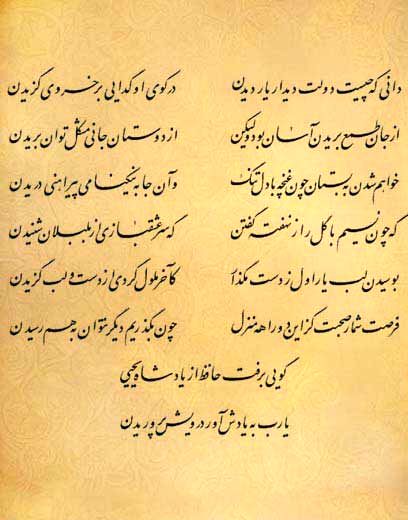 دانی که چیست دولت دیدار یار دیدن در کوی او گدایی بر خسروی گزیدن
از جان طمع بریدن آسان بود ولیکن از دوستان جانی مشکل توان بریدن
خواهم شدن به بستان چون غنچه با دل تنگ وآن جا به نیکنامی پیراهنی دریدن
گه چون نسیم با گل راز نهفته گفتن گه سر عشقبازی از بلبلان شنیدن
بوسیدن لب یار اول ز دست مگذار کآخر ملول گردی از دست و لب گزیدن
فرصت شمار صحبت کز این دوراهه منزل چون بگذریم دیگر نتوان به هم رسیدن
گویی برفت حافظ از یاد شاه یحیی
یارب به یادش آور درویش پروریدن